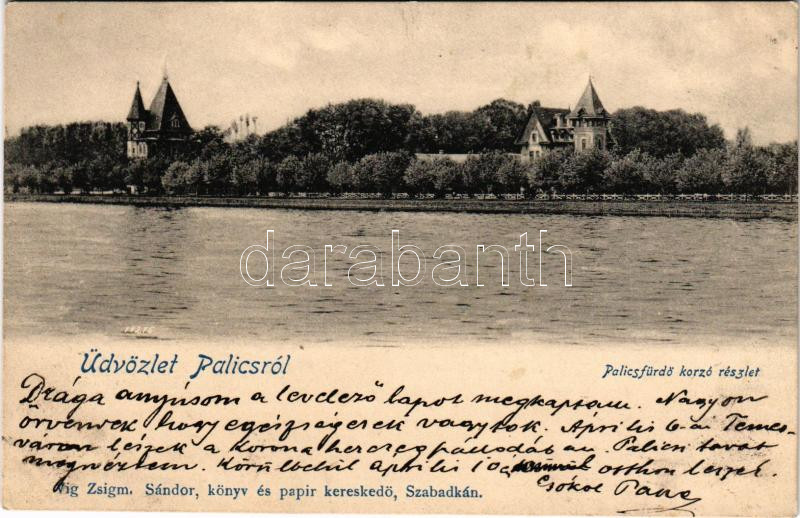 darabanth
Üdvözlet Palicsról
Palicsfürdő korzó részlet
Drága anyjusom a levelező lapot megkaptam. Nagyon
örvendek hogy egészségesek vagytok. Április 6-án Temes-
váron leszek a korona herceg Palicsi tavat
megnéztem. Körülbelül április 10 otthon leszek.
Csókol
Vig Zsigm. Sándor, könyv és papir kereskedő, Szabadkán.